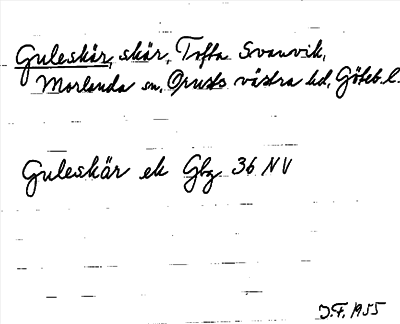 Guleskär, skär, Tofta Svanvik,
Morlanda sn, Orusts västra hd, Göteb. l.
Guleskär ek Gbg 36 NV
J.F. 1955